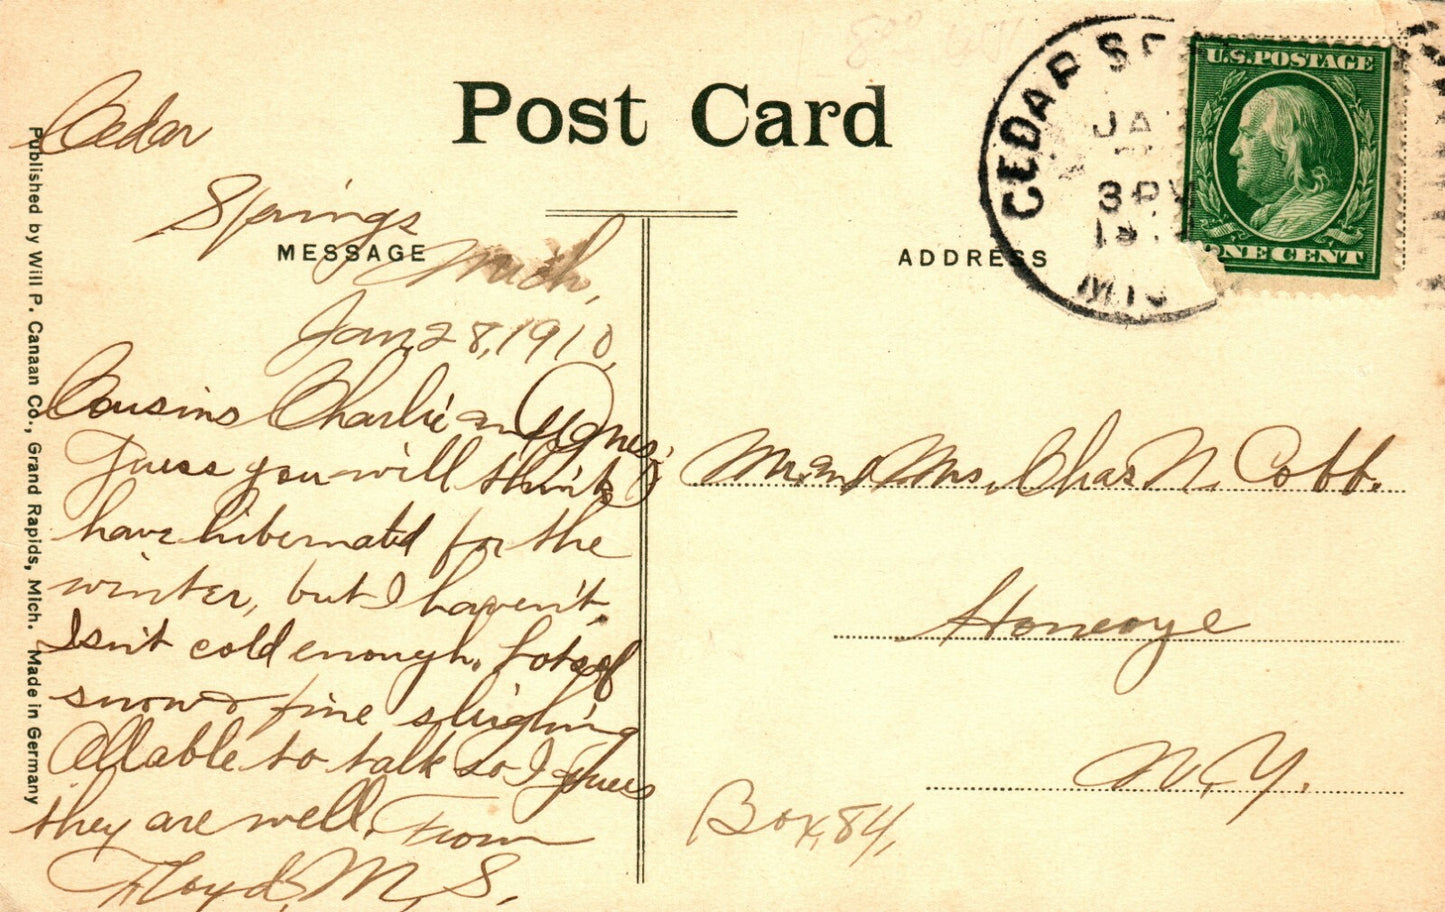 Post Card
Cedar
Springs
Mich,
Jan. 28, 1910,
MESSAGE
Cousins Charlie and Agnes:
Guess you will think I
have hibernated for the
winter, but I haven't,
Isn't cold enough. Lots of
snow & fine sleighing
All able to talk so I guess
they are well. From
Floyd, M, S.
ADDRESS
Mr. and Mrs. Chas N. Cobb.
Honeoye
N. Y.
Box, 84,
CEDAR S
JA
3 PM
19
MIC
U.S. POSTAGE
ONE CENT
Published by Will P. Canaan Co., Grand Rapids, Mich. Made in Germany